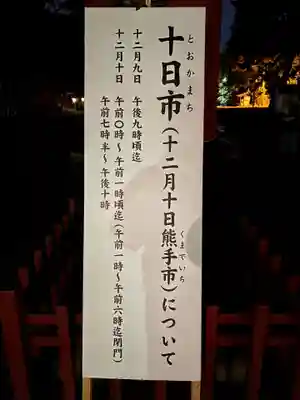 とおかまち
十日市(十二月十日熊手市)について
くまでいち
十二月九日 午後九時頃迄
十二月十日 午前〇時～午前一時頃迄(午前一時～午前六時迄閉門)
午前七時半～午後十時